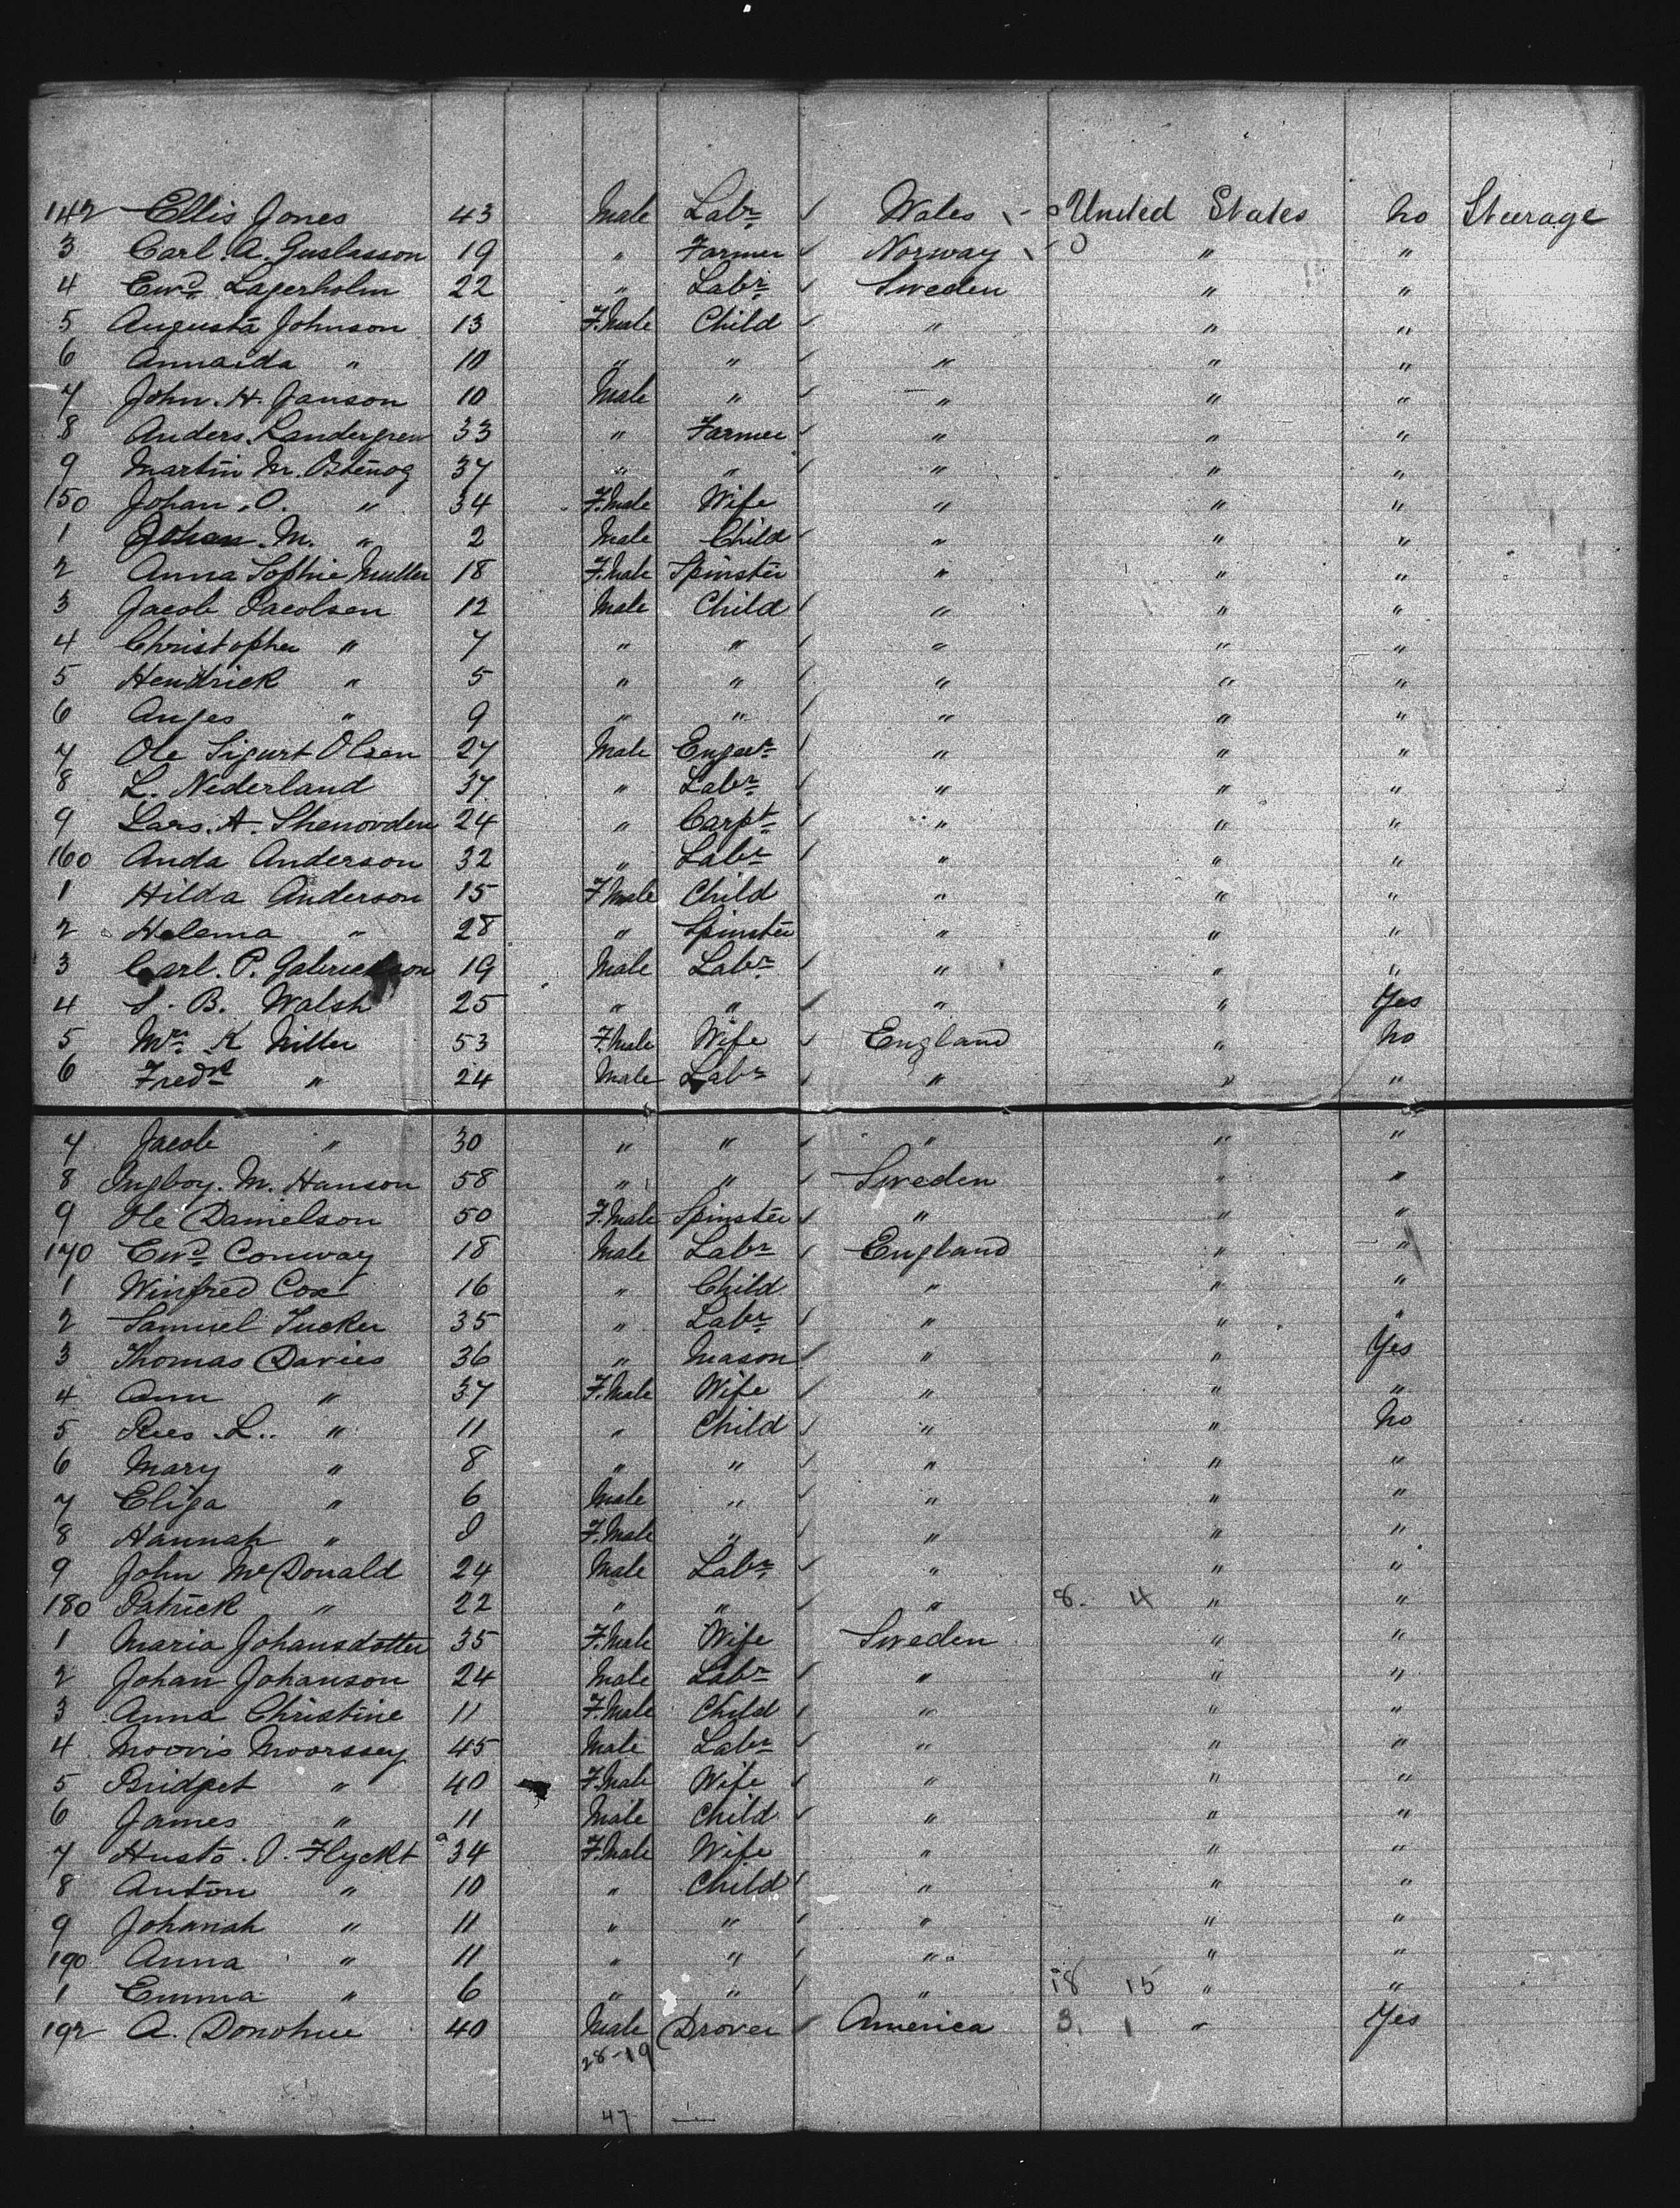 142 Ellis Jones 43 Male Labr Wales United States no Steerage
3 Carl. A. Guslasson 19 " Farmer Norway " "
4 Ewd Lagerholm 22 " Labr Sweden " "
5 Augusta Johnson 13 F.Male Child " " "
6 Annaida " 10 " " " " "
7 John. H. Janson 10 Male " " " "
8 Anders. Landergren 33 " Farmer " " "
9 Martin M. 37 " " " " "
150 Johan. O. " 34 F.Male Wife " " "
1 Johan. M. " 2 Male Child " " "
2 Anna Sophie Muller 18 F.Male Spinster " " "
3 Jacob Jacolsen 12 Male Child " " "
4 Christopher " 7 " " " " "
5 Hendrick " 5 " " " " "
6 Anges " 9 " " " " "
7 Ole Sigurt Olsen 27 Male " " "
8 L. Nederland 37 " Labr " " "
9 Lars. A. Shenovden 24 " Carpt " " "
160 Anda Anderson 32 " Labr " " "
1 Hilda Anderson 15 F.Male Child " " "
2 Helema " 28 " Spinster " " "
3 Carl. P. 19 Male Labr " " "
4 S. B. Walsh 25 " " " " Yes
5 Mrs K Nitter 53 F.Male Wife England " no
6 Fredk " 24 Male Labr " " "
7 Jacob " 30 " " " " "
8 Ingboy. M. Hanson 58 " " Sweden " "
9 Ole Danielson 50 F.Male Spinster " " "
170 Ewd Conway 18 Male Labr England " "
1 Winfred Cox 16 " Child " " "
2 Samuel Tucker 35 " Labr " " "
3 Thomas Davies 36 " Mason " " Yes
4 Ann " 37 F.Male Wife " " "
5 Rees L. " 11 " Child " " no
6 Mary " 8 " " " " "
7 Eliza " 6 Male " " " "
8 Hannah " F.Male " " " "
9 John McDonald 24 Male Labr " " "
180 Patrick " 22 " " " 8. 4 " "
1 Maria Johansdotter 35 F.Male Wife Sweden " "
2 Johan Johanson 24 Male Labr " " "
3 Anna Christine 11 F.Male Child " " "
4 Moovis Moorssey 45 Male Labr " " "
5 Bridget " 40 F.Male Wife " " "
6 James " 11 Male Child " " "
7 Husto. J. Flyckt 34 F.Male Wife " " "
8 Anton " 10 " Child " " "
9 Johanah " 11 " " " " "
190 Anna " 11 " " " " "
1 Emma " 6 " " " 18 15 " "
192 A. Donohue 40 Male Drover America 3. 1 " Yes
28-19
47